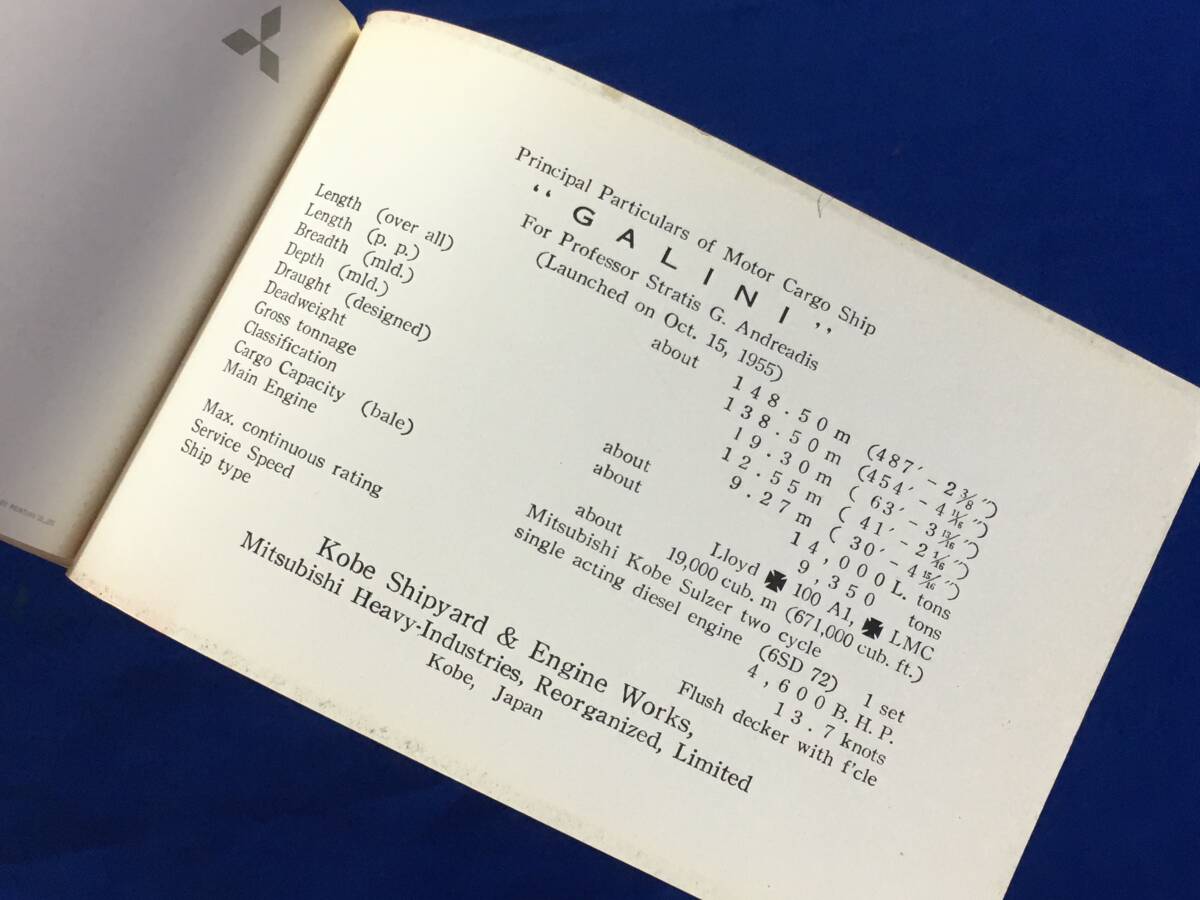 Principal Particulars of Motor Cargo Ship
“GALINI”
For Professor Stratis G. Andreadis
(Launched on Oct. 15, 1955)
Length (over all) about 148.50m (487′-2 3/8″)
Length (p. p.) 138.50m (454′-4 11/16″)
Breadth (mld.) 19.30m (63′-3 13/16″)
Depth (mld.) 12.55m (41′-2 1/16″)
Draught (designed) 9.27m (30′-4 15/16″)
Deadweight about 14,000 L. tons
Gross tonnage about 9,350 tons
Classification Lloyd ✠ 100 A1, ✠ LMC
Cargo Capacity (bale) about 19,000 cub. m (671,000 cub. ft.)
Main Engine Mitsubishi Kobe Sulzer two cycle
single acting diesel engine (6SD 72) 1 set
Max. continuous rating 4,600 B. H. P.
Service Speed 13.7 knots
Ship type Flush decker with f'cle
Kobe Shipyard & Engine Works,
Mitsubishi Heavy-Industries, Reorganized, Limited
Kobe, Japan